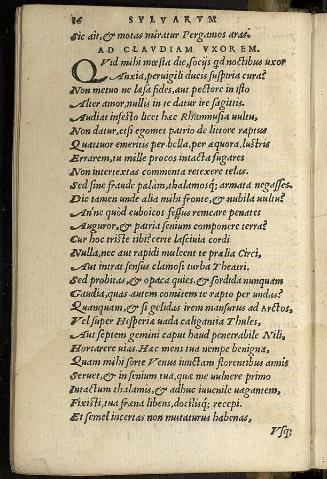 86 SYLVARVM
Sic ait, & motas miratur Pergamos aras.
AD CLAVDIAM VXOREM.
QVid mihi mœsta die, socijs qd noctibus uxor
Anxia, peruigili ducis suspiria cura?
Non metuo ne læsa fides, aut pectore in isto
Alter amor, nullis in te datur ire sagittis.
Audiat infesto licet hæc Rhamnusia uultu,
Non datur, etsi egomet patrio de littore raptus
Quattuor emeritus per bella, per æquora, lustris
Errarem, tu mille procos intacta fugares
Non intertextas commenta retexere telas.
Sed sine fraude palam, thalamosq; armata negasses.
Dic tamen unde alia mihi fronte, & nubila uultu?
An'ne quòd euboicos fessus remeare penates
Auguror, & patria senium componere terra?
Cur hoc triste tibi? certe lasciuia cordi
Nulla, nec aut rapidi mulcent te prælia Circi,
Aut intrat sensus clamosi turba Theatri.
Sed probitas, & opaca quies, & sordida nunquam
Gaudia, quas autem comitem te rapto per undas?
Quanquam, & si gelidas irem mansurus ad Arctos,
Vel super Hesperiæ uada caligantia Thules,
Aut septem gemini caput haud penetrabile Nili,
Hortarere uias. Hac mens tua nempe benigna,
Quam mihi sorte Venus iunctam florentibus annis
Seruet, & in senium tua, quæ me uulnere primo
Intactum thalamis, & adhuc iuuenile uagantem,
Fixisti, tua fræna libens, docilisq; recepi.
Et semel incertas non mutaturus habenas,
Vsq;